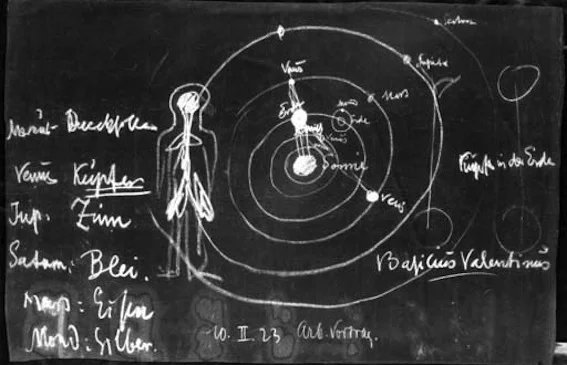 Saturn
Jupiter
Mars
Venus
Erde
Mond
Erde
Sonne
Venus
Merkur-Quecksilber
Venus Kupfer
Jup. Zinn
Saturn: Blei.
Mars: Eisen
Mond: Silber.
Kupfer in der Erde
Basilius Valentinus
10. II. 23 Arb. Vortrag.